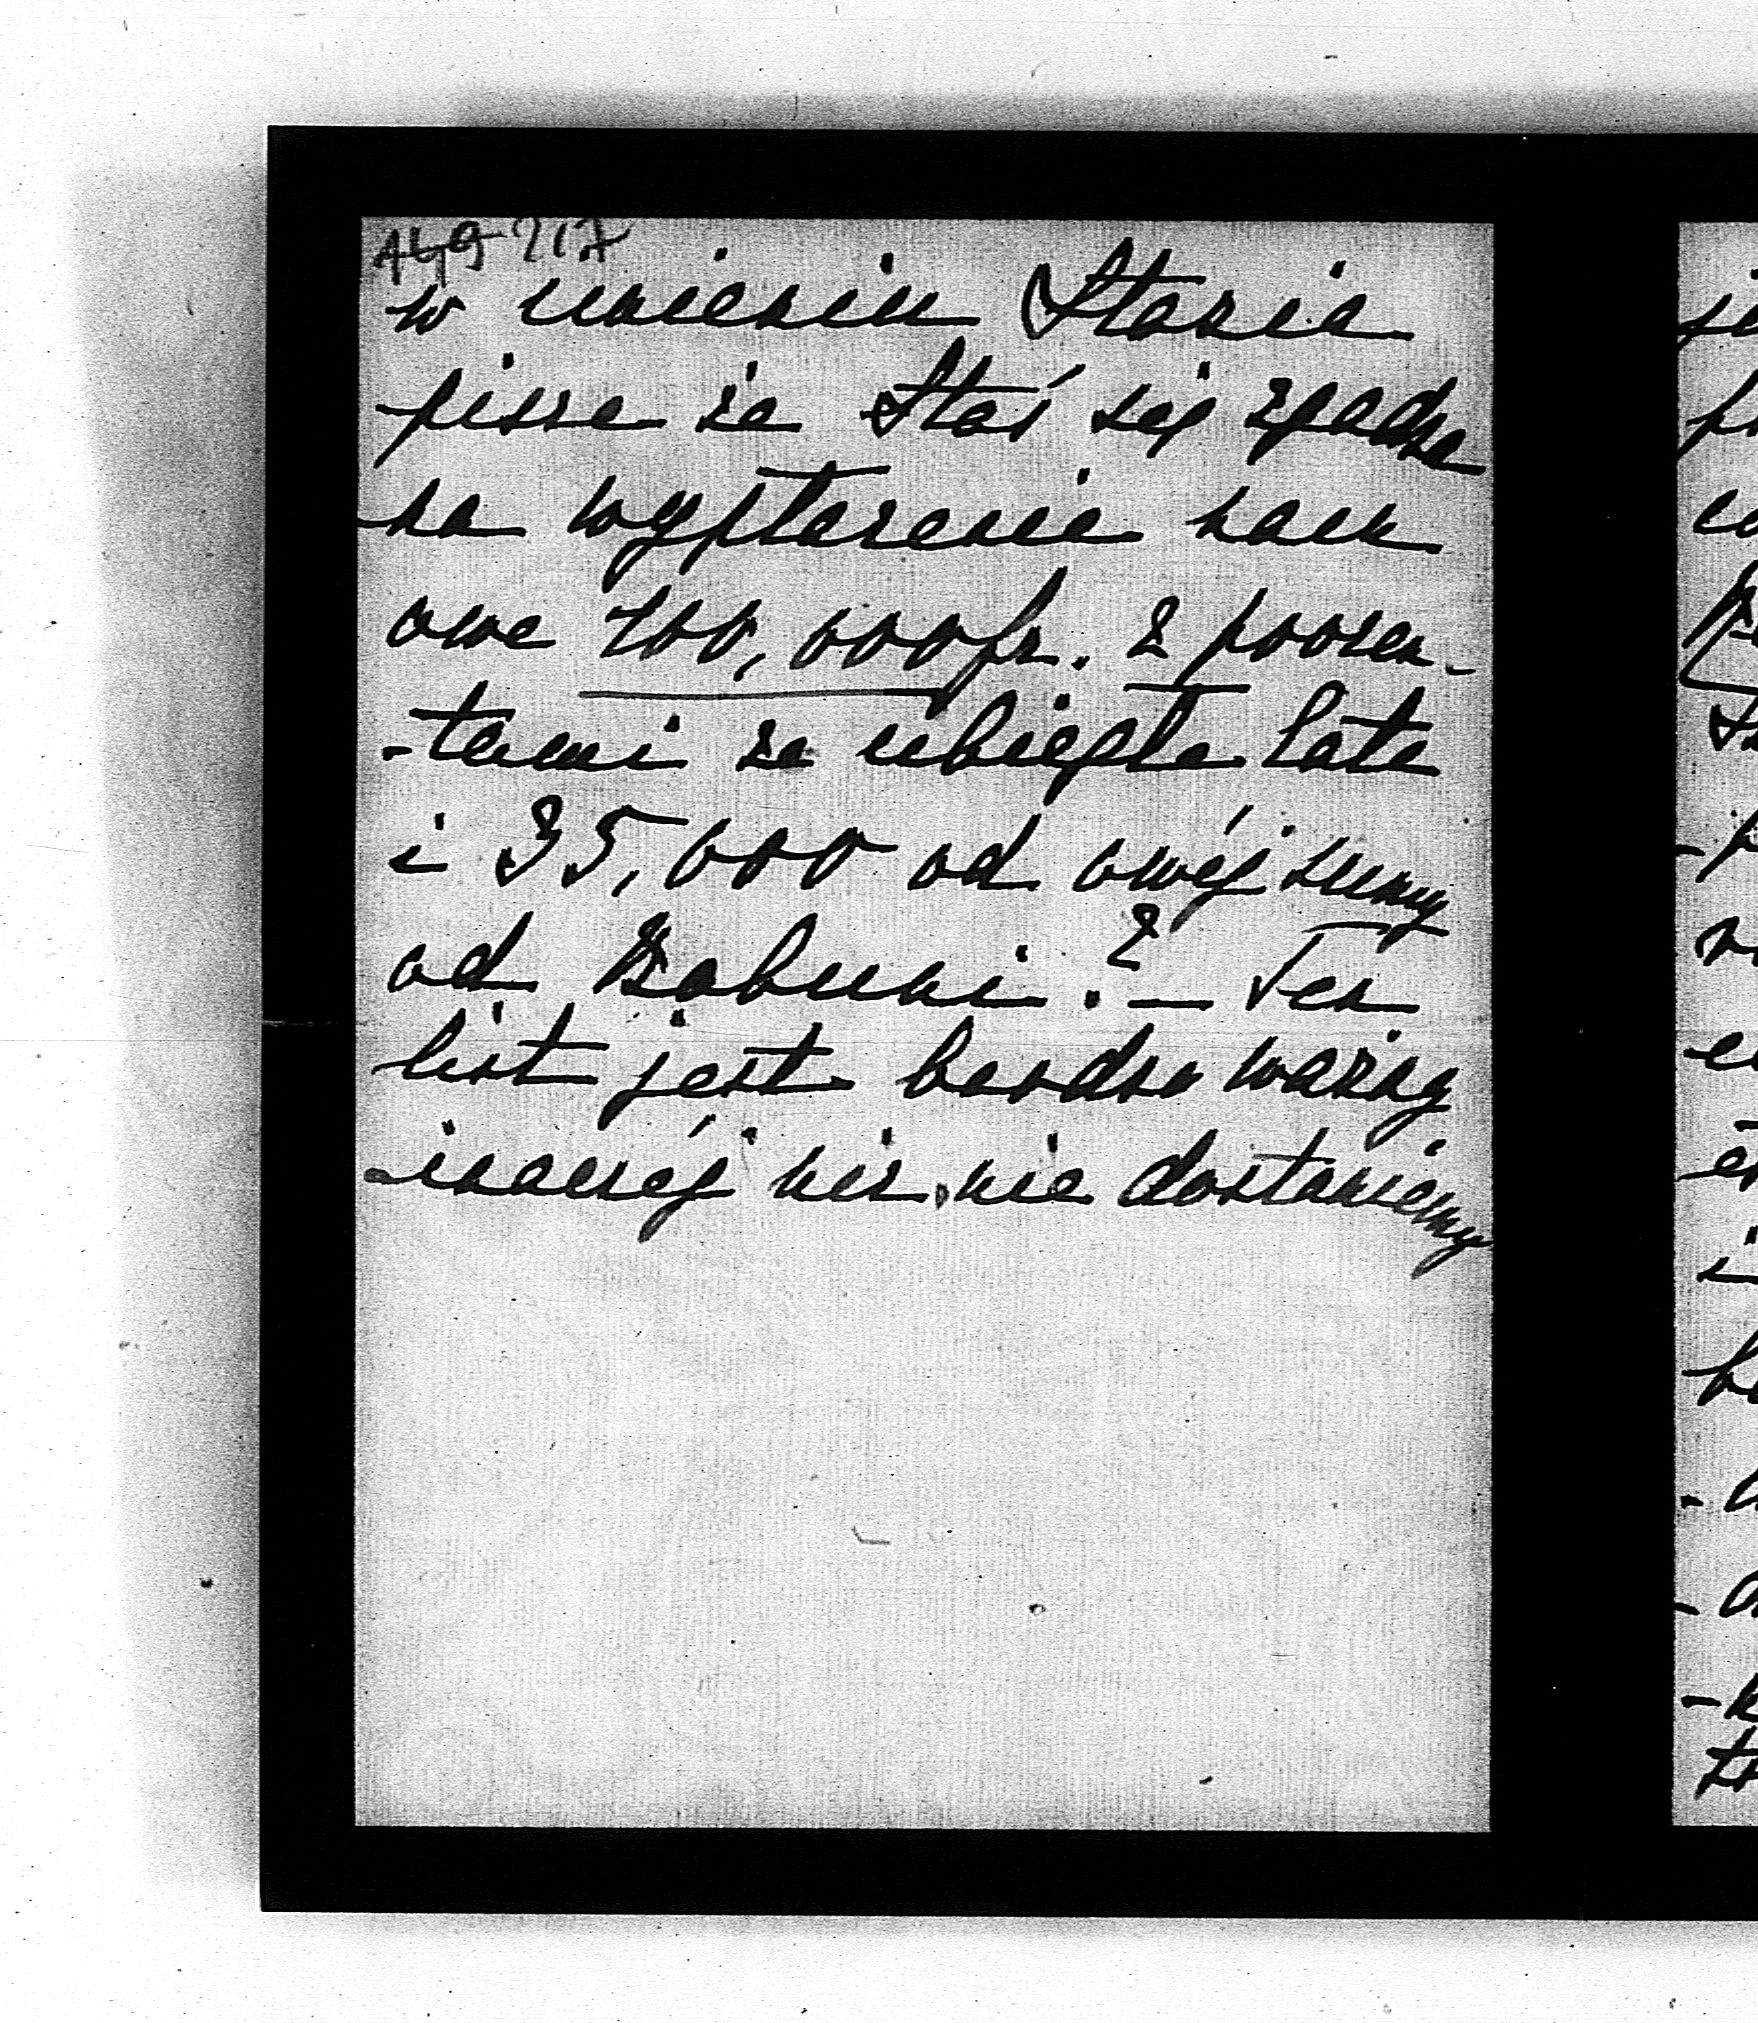 149 217
w imieniu Stasia
pisze że Staś się zgadza
na wypłacenie nam
owe 700,000 fr. z procen-
-tami za ubiegłe lata
i 35,000 od owéj sumy
od Babuni? — Ten
list jest bardzo ważny
inaczéj nic nie dostaniemy